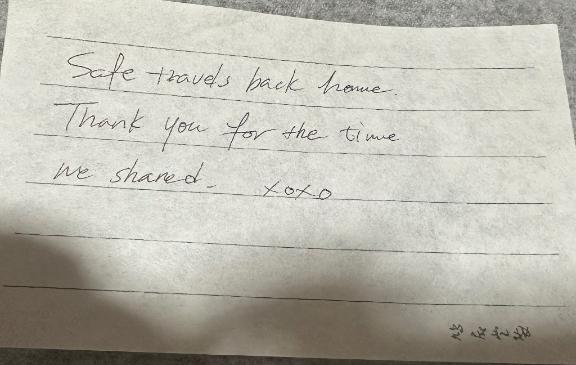 Safe travels back home.
Thank you for the time
we shared. xoxo